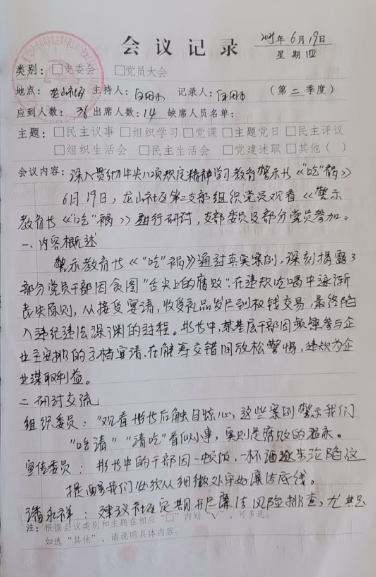 会议记录
2025年6月19日
星期四
类别：□党委会 □党员大会
地点： 主持人： 记录人： （第二季度）
应到人数：36 出席人数：14 缺席人员名单：
主题：□民主议事 □组织学习 □党课 □主题党日 □民主评议
□组织生活会 □民主生活会 □党建述职 □其他（ ）
会议内容：深入贯彻中央八项规定精神学习教育警示书《"吃"祸》
6月19日，龙山社区第二支部组织党员观看《警示
教育书《"吃"祸》》进行研讨，支部委员及部分党员参加。
一、内容概述
警示教育书《"吃"祸》通过真实案例，深刻揭露了
部分党员干部因贪图"舌尖上的腐败"，在违规吃喝中逐渐
丧失原则，从接受宴请，收受礼品发展到权钱交易，最终陷
入违纪违法深渊的过程。书中，某基层干部因频繁参与企
业主安排的高档宴请，在觥筹交错间放松警惕，违规为企
业谋取利益。
二、研讨交流
组织委员："观看书后触目惊心，这些案例警示我们
"吃请""请吃"看似小事，实则是腐败的温床。
宣传委员：书中的干部因一顿饭、一杯酒 陷这
提醒我们必须从细微处守好廉洁底线。
潘永祥：建议社区定期开展廉洁风险排查，尤其是
注：根据会议类别和主题在相应"□"内划"√"，可多选。
如选"其他"，请说明具体内容。